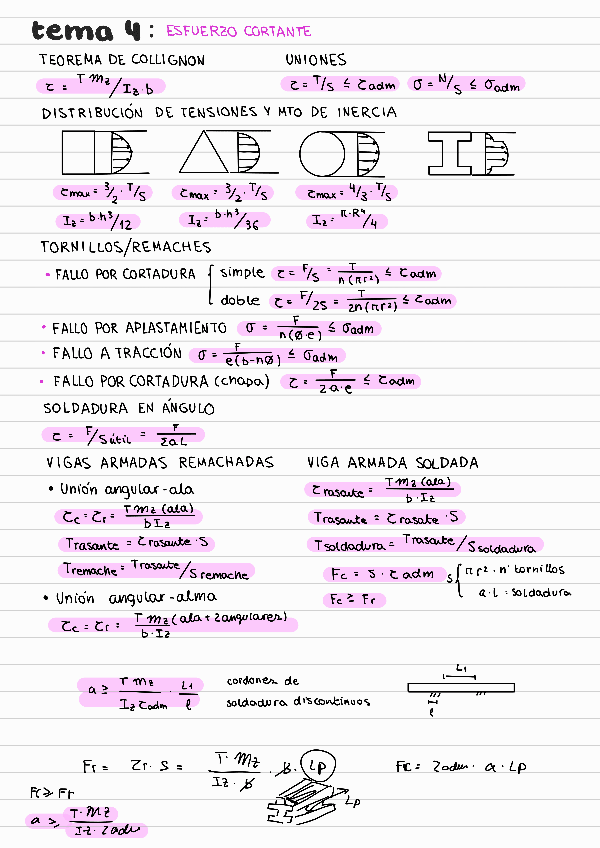 tema 4: ESFUERZO CORTANTE
TEOREMA DE COLLIGNON
τ = T·Mz/Iz·b
UNIONES
τ = T/S ≤ τadm σ = N/S ≤ σadm
DISTRIBUCIÓN DE TENSIONES Y MTO DE INERCIA
τmax = 3/2 · T/S τmax = 3/2 · T/S τmax = 4/3 · T/S
Iz = b·h³/12 Iz = b·h³/36 Iz = π·R⁴/4
TORNILLOS/REMACHES
• FALLO POR CORTADURA simple τ = F/S = T/n(πr²) ≤ τadm
doble τ = F/2S = T/2n(πr²) ≤ τadm
• FALLO POR APLASTAMIENTO σ = F/n(Ø·e) ≤ σadm
• FALLO A TRACCIÓN σ = F/e(b-nØ) ≤ σadm
• FALLO POR CORTADURA (chapa) τ = F/2a·e ≤ τadm
SOLDADURA EN ÁNGULO
τ = F/Sútil = F/ΣaL
VIGAS ARMADAS REMACHADAS
• Unión angular-ala
τc = τr = T Mz (ala)/b Iz
Trasante = τrasante · S
Tremache = Trasante/S remache
• Unión angular-alma
τc = τr = T Mz (ala + 2angulares)/b·Iz
VIGA ARMADA SOLDADA
τrasante = T Mz (ala)/b·Iz
Trasante = τrasate · S
Tsoldadura = Trasante/S soldadura
Fc = S · τadm S { πr² · nº tornillos
a·L = soldadura
Fc ≥ Fr
a ≥ T Mz/Iz τadm · L1/l cordones de
soldadura discontinuos
L1
l
Fr = τr · S = T·Mz/Iz·b · b · Lp Fc = τadm · a · Lp
Lp
Fc ≥ Fr
a ≥ T·Mz/Iz·τadm